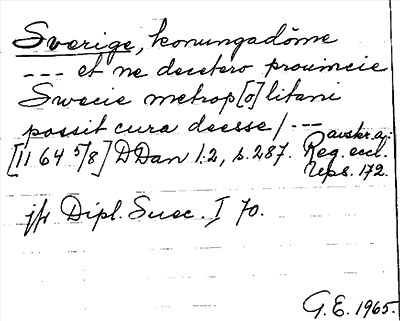 Sverige, konungadöme
--- et ne decetero prouincie
Swecie metrop[o]litani
possit cura deesse / ---
[1164 5/8] DDan 1:2, s. 287. avskr. aj:
Reg. eccl.
Ups. 172.
jfr Dipl. Suec. I 70.
G.E. 1965.